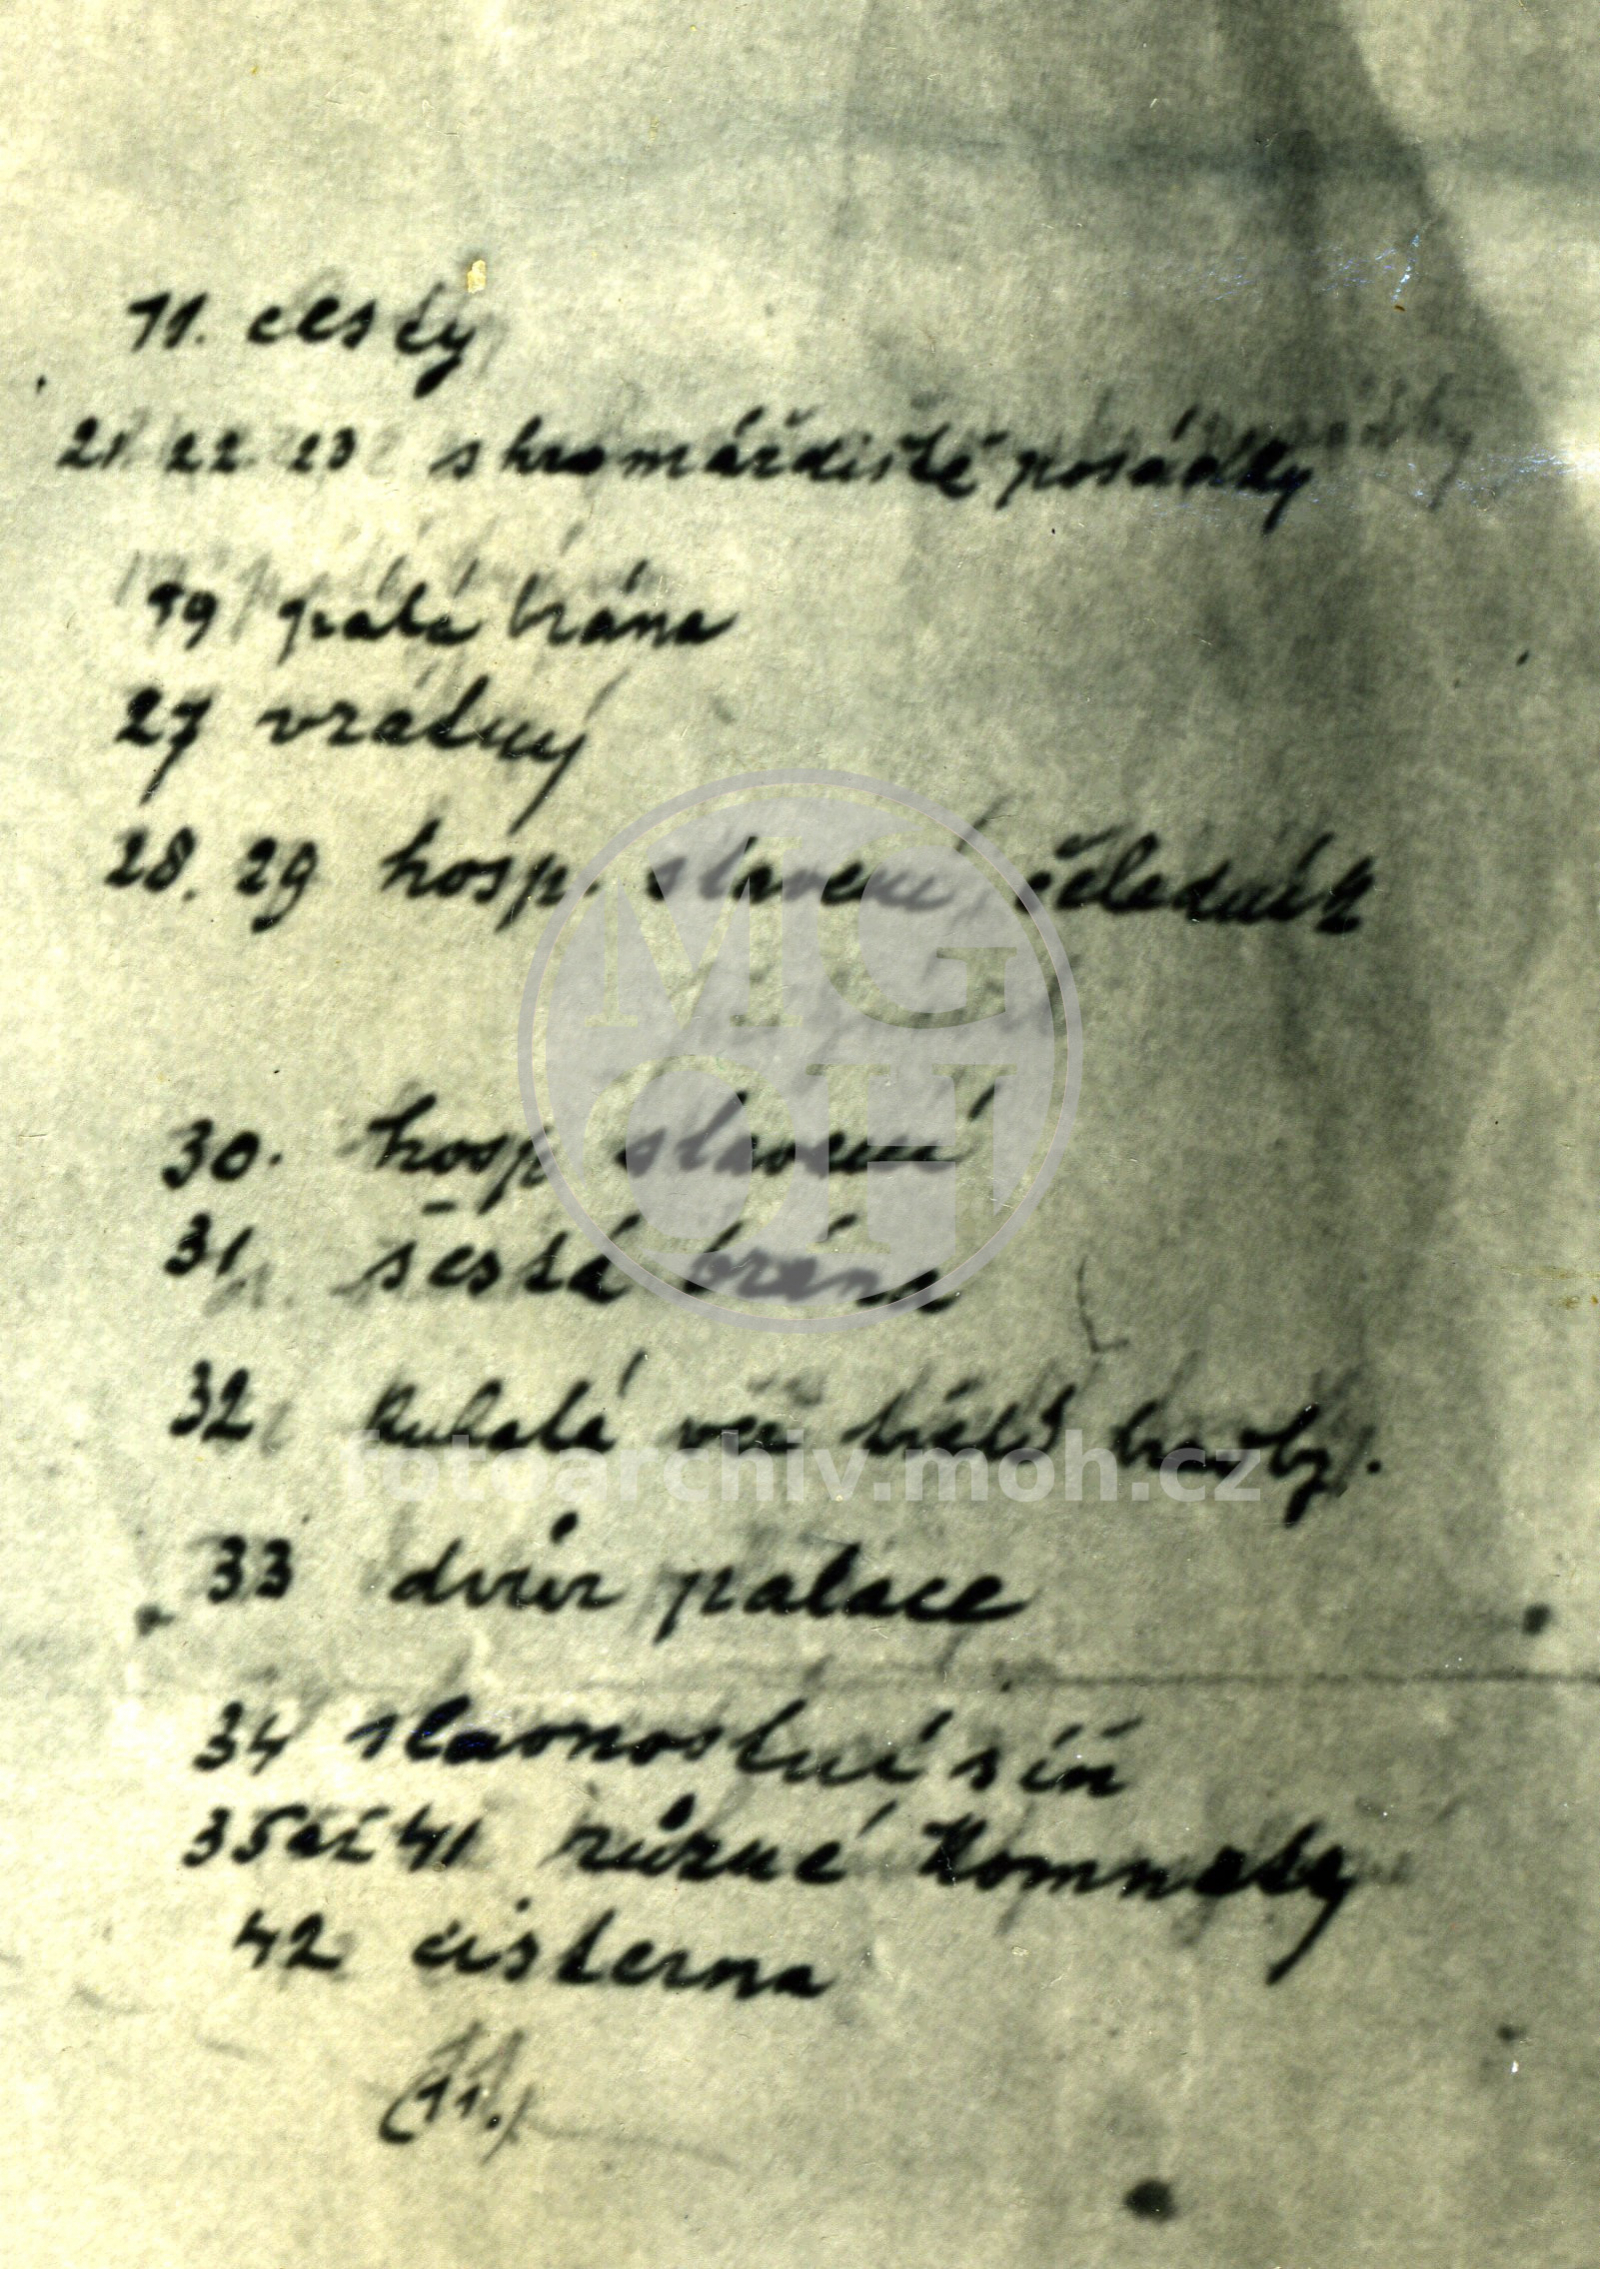 11. cesty
21 22 23 shromáždiště posádky
19 pátá brána
27 vrátný
28. 29 hosp. stavení, čeledník
30. hosp. stavení
31. šestá brána
32 kulatá věž třetí hradby.
33 dvůr paláce
34 slavnostní síň
35 až 41 různé komnaty
42 cisterna
(11.)
MG
OH
fotoarchiv.moh.cz